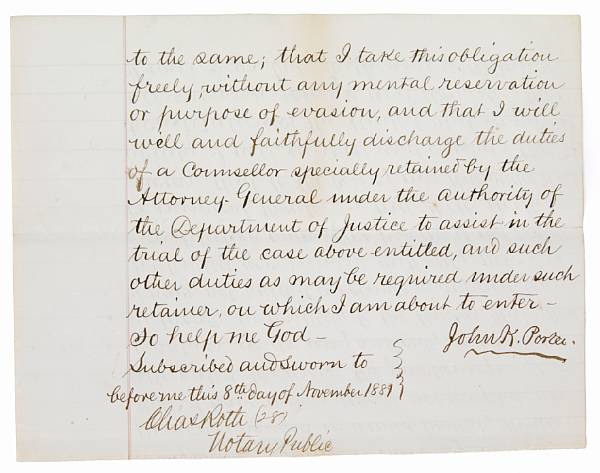 to the same; that I take this obligation
freely, without any mental reservation
or purpose of evasion, and that I will
well and faithfully discharge the duties
of a Counsellor specially retained by the
Attorney-General under the authority of
the Department of Justice to assist in the
trial of the case above entitled, and such
other duties as may be required under such
retainer, on which I am about to enter –
So help me God –
John K. Porter.
Subscribed and sworn to
before me this 8th day of November 1881
Chas Roth (28)
Notary Public